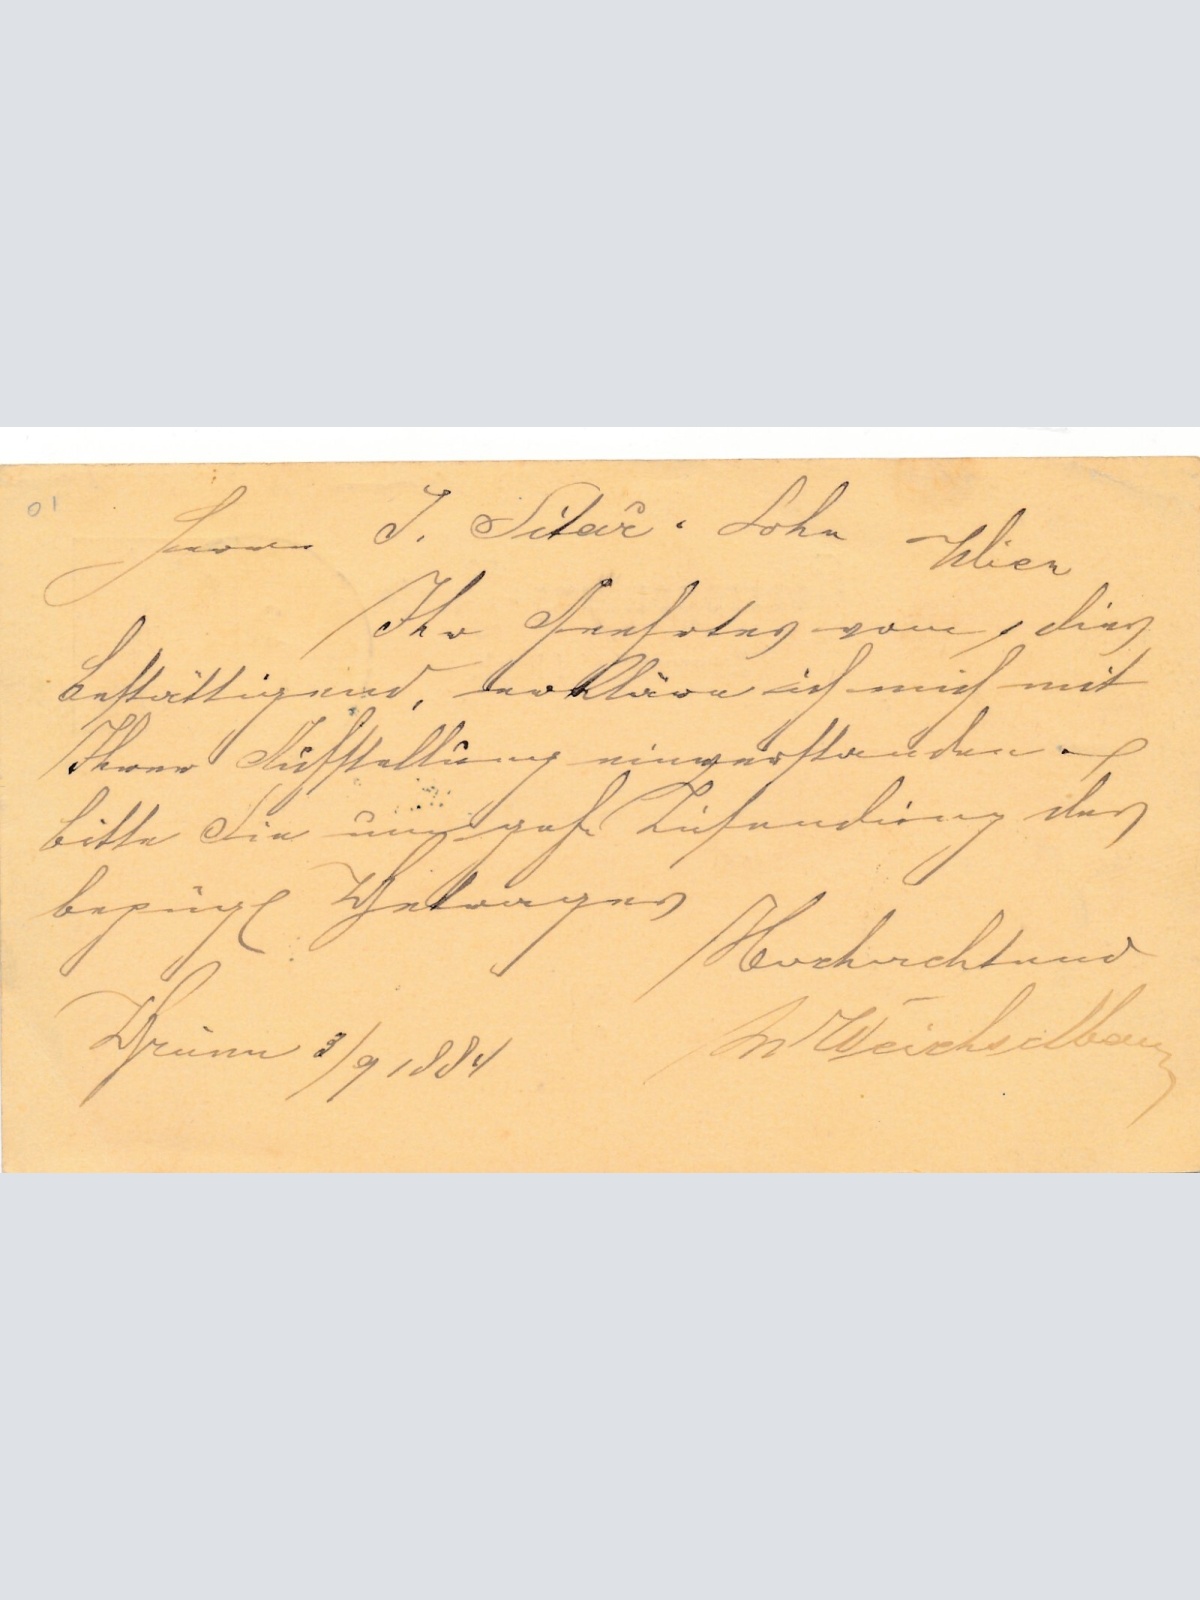 01
Herrn J. Sitař & Sohn Wien
Ihr Geehrtes vom 1 dies
bestättigend, erkläre ich mich mit
Ihrer Aufstellung einverstanden &
bitte Sie um gef. Zusendung des
bezügl Betrages
Hochachtend
Brünn 3/9 1884
M Weichselbaum